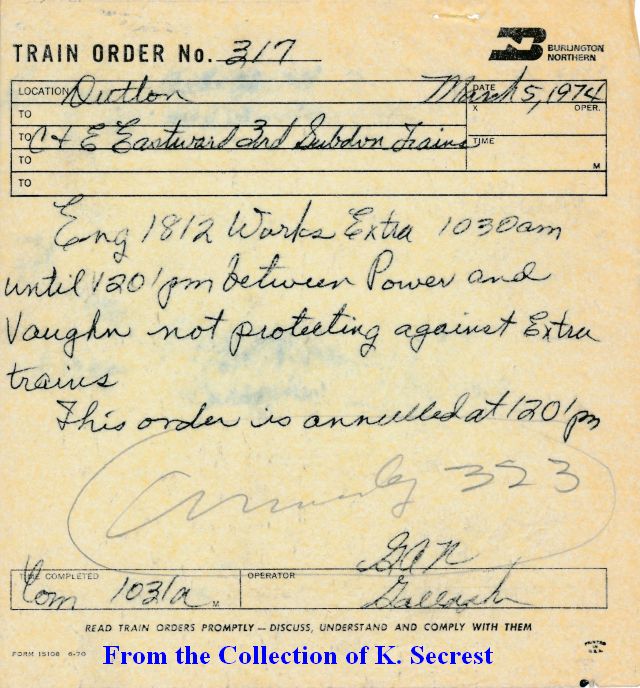 TRAIN ORDER No. 317
BURLINGTON
NORTHERN
LOCATION Dutton
DATE March 5, 1974
TO X OPER.
TO C+E Eastward 3rd Subdvn Trains TIME
TO M
TO
Eng 1812 Works Extra 1030am
until 1201pm between Power and
Vaughn not protecting against Extra
trains
This order is annulled at 1201pm
323
GAN
TIME COMPLETED Com 1031a M
OPERATOR
READ TRAIN ORDERS PROMPTLY — DISCUSS, UNDERSTAND AND COMPLY WITH THEM
FORM 15108 6-70
From the Collection of K. Secrest
PRINTED
IN
U.S.A.